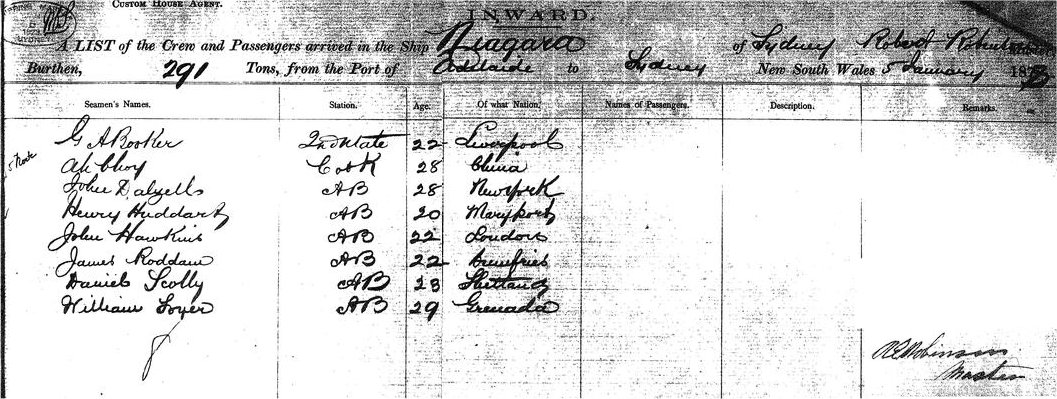 CUSTOM HOUSE AGENT.
INWARD.
A LIST of the Crew and Passengers arrived in the Ship Niagara of Sydney Robert
Burthen, 291 Tons, from the Port of Adelaide to Sydney New South Wales 5 January 187
Seamen's Names. Station. Age. Of what Nation. Names of Passengers. Description. Remarks.
G A Booker 2nd Mate 22 Liverpool
Ah Choy Cook 28 China
John Dalzells AB 28 New York
Henry Huddart AB 20 Maryport
John Hawkins AB 22 London
James Roddam AB 22 Dumfries
Daniel Scolly AB 23 Shetland
William AB 29 Grenada
Robinson
Master